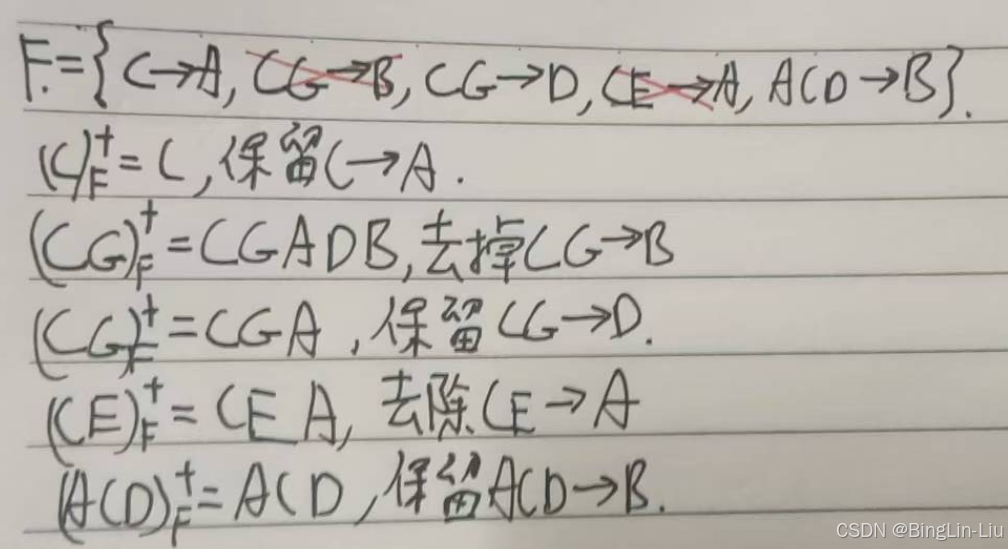 F={C→A, CG→B, CG→D, CE→A, ACD→B}.
(C)⁺F=C,保留C→A.
(CG)⁺F=CGADB,去掉CG→B
(CG)⁺F=CGA,保留CG→D.
(CE)⁺F=CEA,去除CE→A
(ACD)⁺F=ACD,保留ACD→B.
CSDN @BingLin-Liu